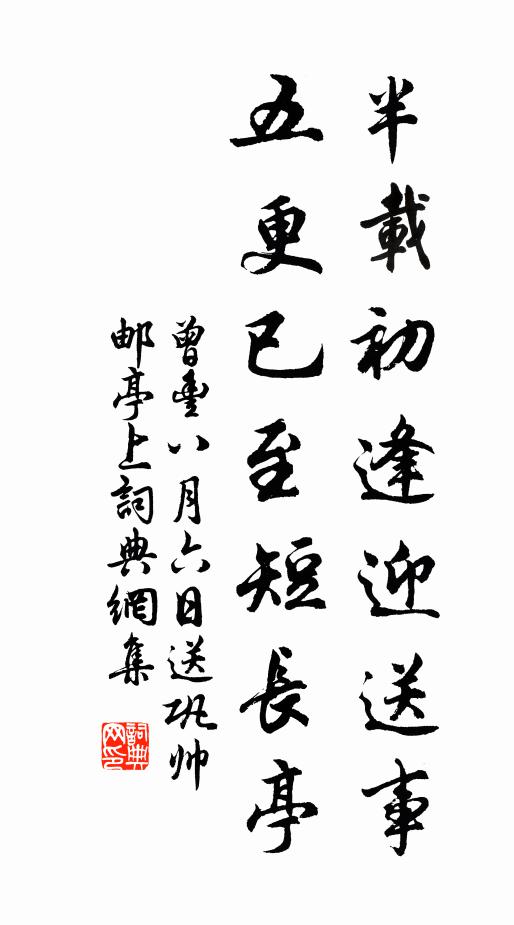 半載初逢迎送事
五更已至短長亭
曾豐八月六日送巩帅
邮亭上詞典網集
詞典网印